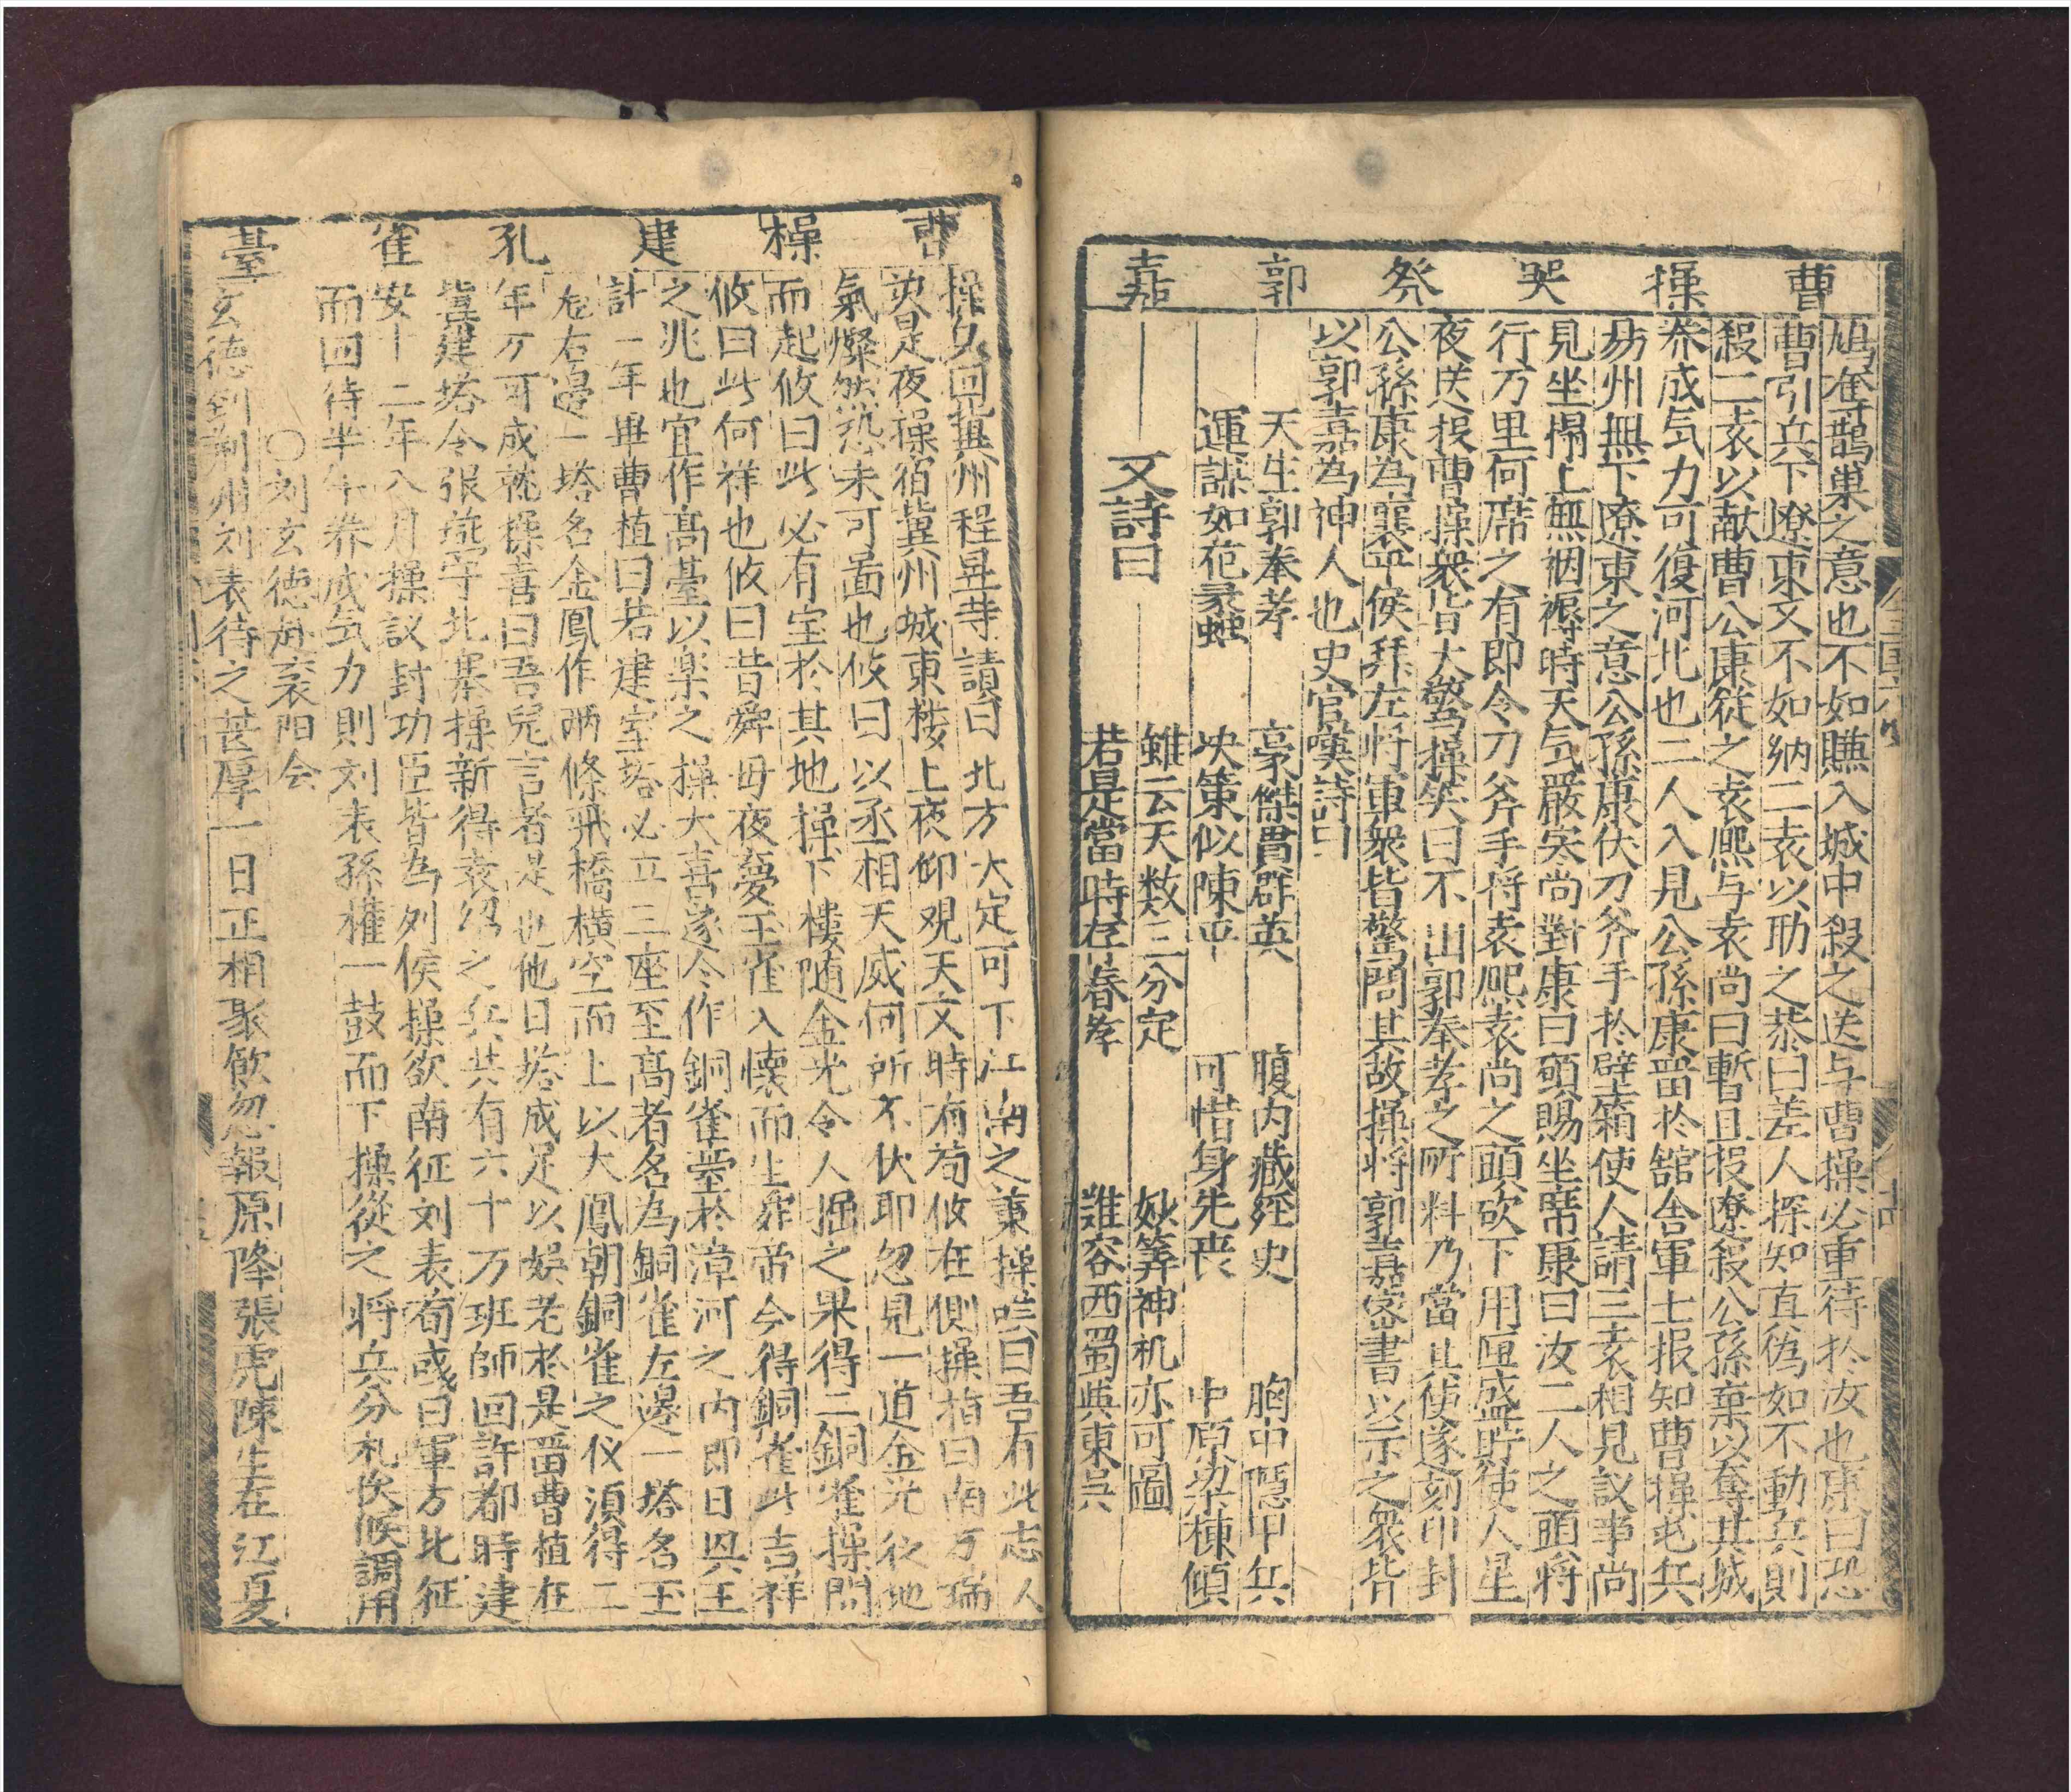 曹操哭祭郭嘉
鳩奪鵲巢之意也不如賺入城中殺之送与曹操必重待於汝也康曰恐
曹引兵下遼東又不如納二袁以助之恭曰差人探知真偽如不動兵則
殺二袁以献曹公康從之袁熙与袁尚曰暫且投遼殺公孫康以奪其城
养成気力可復河北也二人入見公孫康畱於舘舍軍士报知曹操屯兵
易州無下遼東之意公孫康伏刀斧手於壁箱使人請二袁相見議事尚
見坐榻上無裀褥時天気嚴寒尚對康曰願賜坐席康曰汝二人之頭将
行万里何席之有即令刀斧手将袁熙袁尚之頭砍下用匣盛貯使人星
夜送投曹操衆皆大驚操笑曰不出郭奉孝之所料乃當其使遂刻印封
公孫康為襄平侯拜左将軍衆皆驚問其故操将郭嘉密書以示之衆皆
以郭嘉為神人也史官嘆詩曰
天生郭奉孝 豪傑貫群英 腹内藏経史 胸中隱甲兵
運謀如范蠡 决策似陳平 可惜身先丧 中原梁棟傾
又詩曰 雖云天数三分定 妙筭神机亦可圖
若是當時在春孝 难容西蜀與東吴
全国六
曹操建孔雀臺
操久回冀州程昱等請曰北方大定可下江南之兼操咲曰吾有此志人
矣是夜操宿冀州城東楼上夜仰观天文時有荀攸在側操指曰南方瑞
氣燦然恐未可啚也攸曰以丞相天威何所不伏耶忽見一道金光從地
而起攸曰此必有宝於其地操下樓随金光令人掘之果得二銅雀操問
攸曰此何祥也攸曰昔舜母夜夢玉雀入懷而生舜帝今得銅雀此吉祥
之兆也宜作髙臺以楽之操大喜遂令作銅雀臺於漳河之内即日㒷工
計一年畢曹植曰若建宝塔必立三座至髙者名為銅雀左邉一塔名玉
右邉一塔名金鳳作兩條飛橋横空而上以大鳳朝銅雀之仪須得二
年方可成就操喜曰吾兒言者是也他日塔成足以娛老於是畱曹植在
冀建塔令張燕守北塞操新得袁绍之兵共有六十万班師回許都時建
安十二年八月操議封功臣皆為列侯操欲南征刘表荀彧曰軍方北征
而回待半年养成気力則刘表孫權一鼓而下操從之将兵分札俟候調用
○刘玄德赴襄阳会
玄德到荆州刘表待之甚厚一日正相聚飲忽報原降張虎陳生在江夏